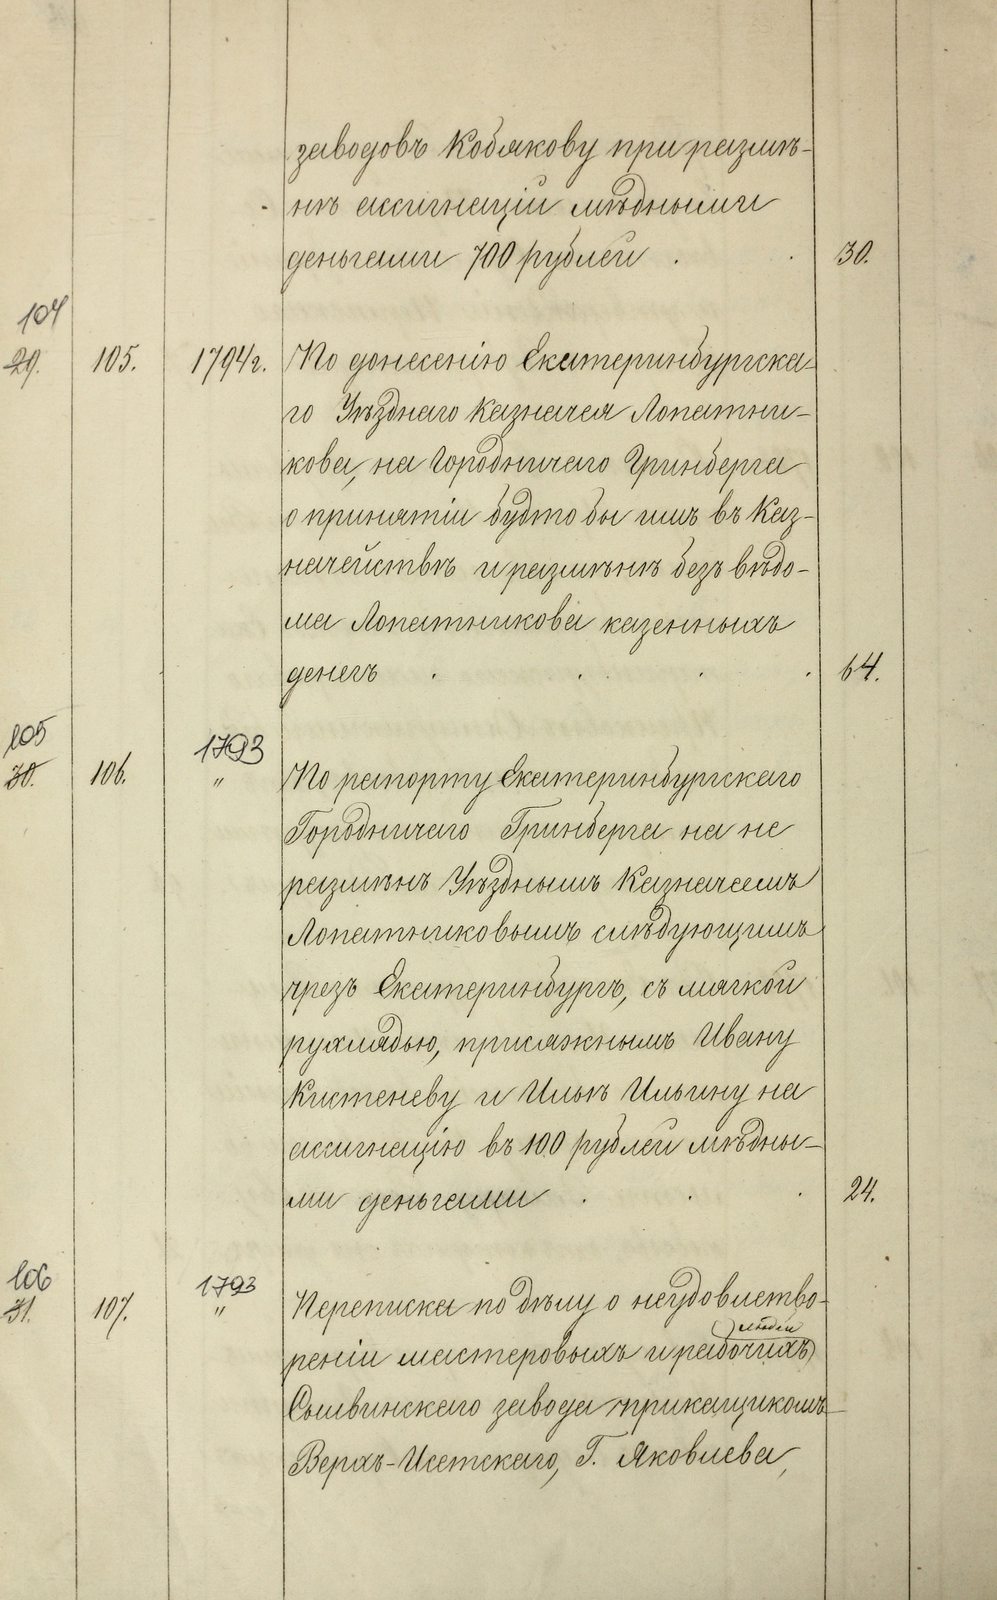 заводовъ Кобякову при размѣ-
нѣ ассигнаціи мѣдными
деньгами 700 рублей . . 30.
104
29. 105. 1794 г. По донесенію Екатеринбургска-
го Уѣзднаго Казначея Лопатни-
кова, на Городничаго Гринберга
о принятіи будто бы имъ въ Каз-
начействѣ и размѣнѣ безъ вѣдо-
ма Лопатникова казенныхъ
денегъ . . . . 64.
105 1793
30. 106. " По рапорту Екатеринбургскаго
Городничаго Гринберга на не
размѣнъ Уѣзднымъ Казначеемъ
Лопатниковымъ слѣдующимъ
чрезъ Екатеринбургъ, съ мягкой
рухлядью, присяжнымъ Ивану
Кистеневу и Ильѣ Ильину на
ассигнацію въ 100 рублей мѣдны-
ми деньгами . . . 24.
106 1793
31. 107. " Переписка по дѣлу о неудовлетво-
людей
реніи мастеровыхъ и рабочихъ
Сылвинскаго завода прикащикомъ
Верхъ-Исетскаго, Г. Яковлева,